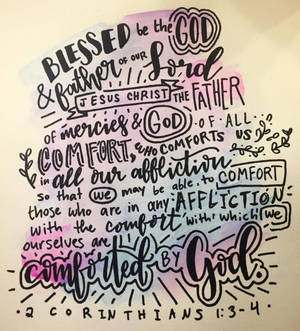 BLESSED be the GOD
& father OF OUR Lord
JESUS CHRIST THE FATHER
of mercies & GOD OF ALL
COMFORT, WHO COMFORTS US
in all our affliction
so that we may be able to COMFORT
those who are in any AFFLICTION
with the comfort with which we
ourselves are
comforted BY God.
2 CORINTHIANS 1:3-4